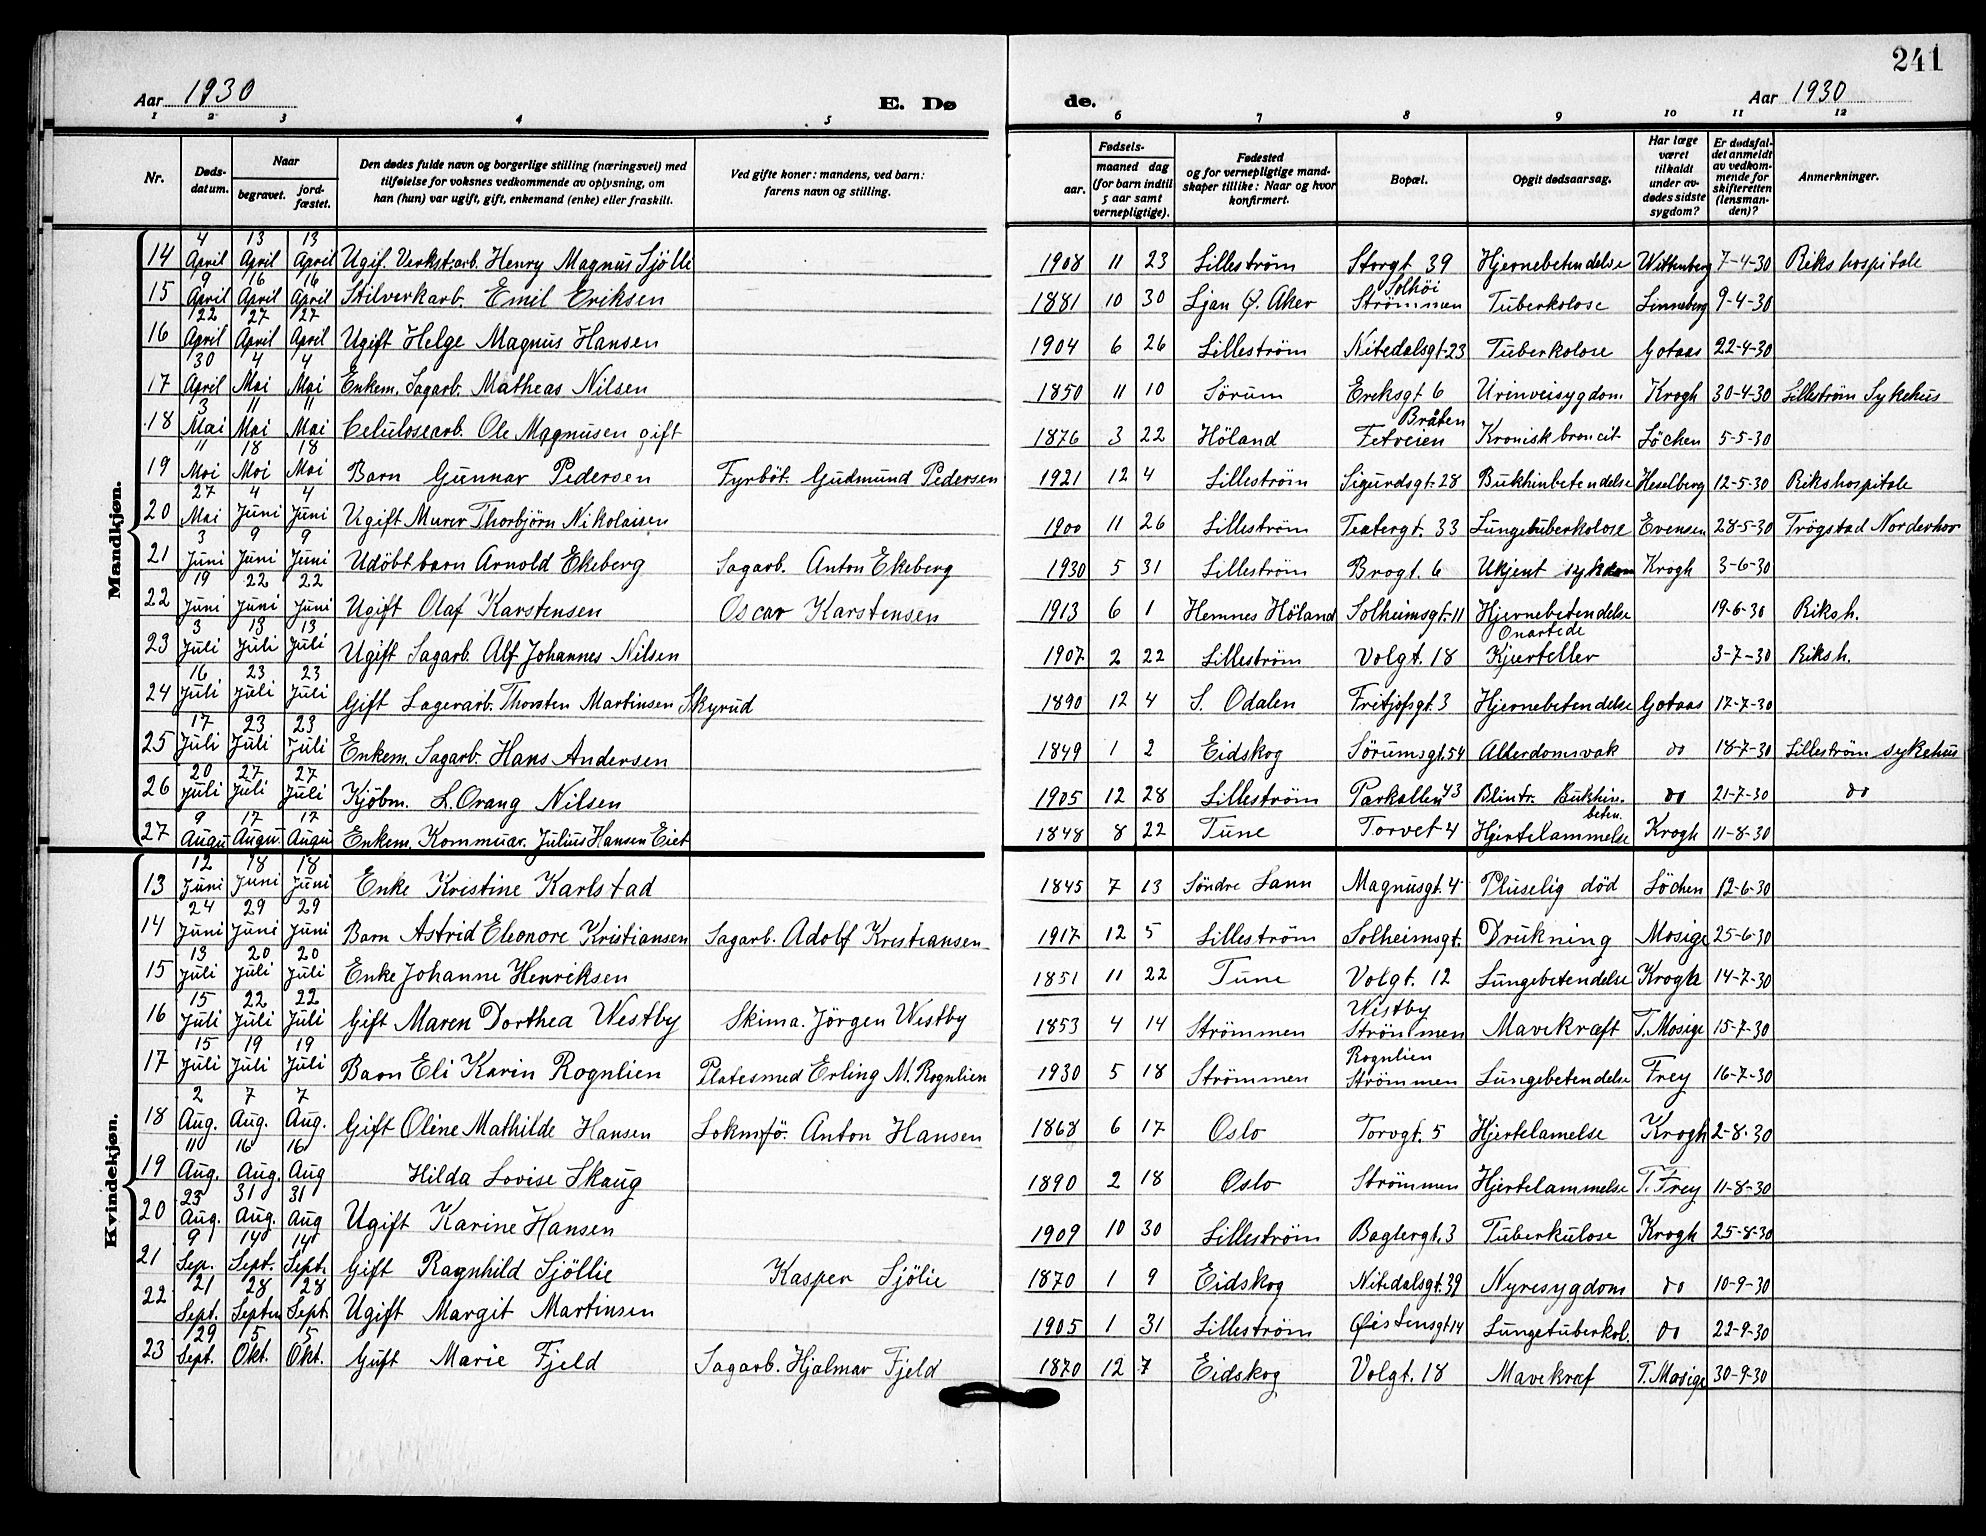 241
Aar 1930 E. Dø de. Aar 1930
1 2 3 4 5 6 7 8 9 10 11 12
Nr. Døds-datum. Naar begravet. jord-fæstet. Den dødes fulde navn og borgerlige stilling (næringsvei) med tilføielse for voksnes vedkommende av oplysning, om han (hun) var ugift, gift, enkemand (enke) eller fraskilt. Ved gifte koner: mandens, ved barn: farens navn og stilling. Fødsels- aar. maaned dag (for barn indtil 5 aar samt vernepligtige). Fødested og for vernepligtige mand-skaper tillike: Naar og hvor konfirmert. Bopæl. Opgit dødsaarsag. Har læge været tilkaldt under av-dødes sidste sygdom? Er dødsfal-det anmeldt av vedkom-mende for skifteretten (lensman-den)? Anmerkninger.
Mandkjøn.
14 4 April 13 April 13 April Ugif. Verkst.arb. Henry Magnus Sjölli 1908 11 23 Lilleström Storgt 39 Hjernebetendelse Wittenberg 7-4-30 Rikshospitale
15 9 April 16 April 16 April Stilverkarb. Emil Eriksen 1881 10 30 Ljan Ö. Aker Solhöi Strömmen Tuberkolose Linneberg 9-4-30
16 22 April 27 April 27 April Ugift Helge Magnus Hansen 1904 6 26 Lilleström Nitedalsgt-23 Tuberkolose Gotaas 22-4-30
17 30 April 4 Mai 4 Mai Enkem. Sagarb. Matheas Nilsen 1850 11 10 Sörum Ereksgt 6 Urinveisygdom Krogh 30-4-30 Lilleström Sykehus
18 3 Mai 11 Mai 11 Mai Celulosearb. Ole Magnusen gift 1876 3 22 Höland Bråten Fetveien Kronisk broncit- Löchen 5-5-30
19 11 Mai 18 Mai 18 Mai Barn Gunnar Pedersen Fyrböt. Gudmund Pedersen 1921 12 4 Lilleström Sigurdsgt-28 Bukhinbetendelse Heselberg 12-5-30 Rikshospitale
20 27 Mai 4 Juni 4 Juni Ugift Murer Thorbjörn Nikolaisen 1900 11 26 Lilleström Teatergt. 33 Lungetuberkolose Evensen 28-5-30 Trögstad Norderhov
21 3 Juni 9 Juni 9 Juni Udöbt barn Arnold Ekeberg Sagarb. Anton Ekeberg 1930 5 31 Lilleström Brogt. 6 Ukjent sykdom Krogh 3-6-30
22 19 Juni 22 Juni 22 Juni Ugift Olaf Karstensen Oscar Karstensen 1913 6 1 Hemnes Höland Solheimsgt-11 Hjernebetendelse 19-6-30 Riksh.
23 3 Juli 13 Juli 13 Juli Ugift Sagarb. Alf Johannes Nilsen 1907 2 22 Lilleström Volgt. 18 Onartede Kjerteller 3-7-30 Riksh.
24 16 Juli 23 Juli 23 Juli Gift Lagerarb. Thorsten Martinsen Skyrud 1890 12 4 S. Odalen Fritjofsgt. 3 Hjernebetendelse Gotaas 17-7-30
25 17 Juli 23 Juli 23 Juli Enkem. Sagarb. Hans Andersen 1849 1 2 Eidskog Sörumsgt.54 Alterdomsvak do 18-7-30 Lilleström sykehus
26 20 Juli 27 Juli 27 Juli Kjöbm. L. Orang Nilsen 1905 12 28 Lilleström Parkallen 43 Blintr. Bukhin. beten. do 21-7-30 do
27 9 Augu 17 Augu. 17 Augu Enkem. Kommuar. Julius Hansen Eiet 1848 8 22 Tune Torvet 4 Hjertelammelse Krogh 11-8-30
Kvindekjøn.
13 12 Juni 18 Juni 18 Juni Enke Kristine Karlstad 1845 7 13 Söndre Sann Magnusgt. 4 Pluselig död Löchen 12-6-30
14 24 Juni 29 Juni 29 Juni Barn Astrid Eleonore Kristiansen Sagarb. Adolf Krestiansen 1917 12 5 Lilleström Solheimsgt. Drukning Mosige 25-6-30
15 13 Juli 20 Juli 20 Juli Enke Johanne Henriksen 1851 11 22 Tune Volgt. 12 Lungebetendelse Krogh 14-7-30
16 15 Juli 22 Juli 22 Juli Gift Maren Dorthea Westby Skima. Jörgen Westby 1853 4 14 Strömmen Westby Strömmen Mavekræft T. Mosige 15-7-30
17 15 Juli 19 Juli 19 Juli Barn Eli Karin Rognlien Platesmed Erling M. Rognlien 1930 5 18 Strömmen Rognlien Strömmen Lungebetendelse Frey 16-7-30
18 2 Aug. 7 Aug. 7 Aug. Gift Oline Mathilde Hansen Lokmfö. Anton Hansen 1868 6 17 Oslo Torvgt. 5 Hjertelamelse Krogh 2-8-30
19 11 Aug. 16 Aug. 16 Aug Hilda Lovise Skaug 1890 2 18 Oslo Strömmen Hjertelammelse T. Frey 11-8-30
20 23 Aug. 31 Aug. 31 Aug Ugift Karine Hansen 1909 10 30 Lilleström Baglergt. 3 Tuberkulose Krogh 25-8-30
21 9 Sep. 14 Sept. 14 Sept. Gift Ragnhild Sjöllie Kasper Sjölie 1870 1 9 Eidskog Nitedalsgt. 39 Nyresygdom do 10-9-30
22 21 Sept. 28 Septem 28 Sept. Ugift Margit Martinsen 1905 1 31 Lilleström Øistensgt 14 Lungetuberkol. do 22-9-30
23 29 Sept. 5 Okt. 5 Okt. Gift Marie Fjeld Sagarb. Hjalmar Fjeld 1870 12 7 Eidskog Volgt. 18 Mavekræf T. Mosige 30-9-30